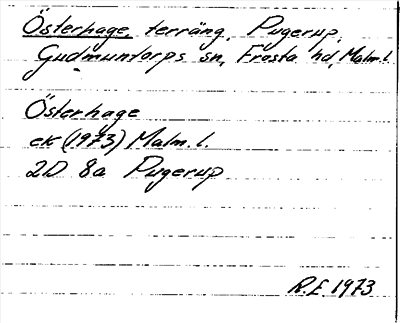 Österhage, terräng, Pugerup,
Gudmuntorps sn, Frosta hd, Malm.l.
Österhage
ek (1973) Malm.l.
2D 8a Pugerup
R.E. 1973